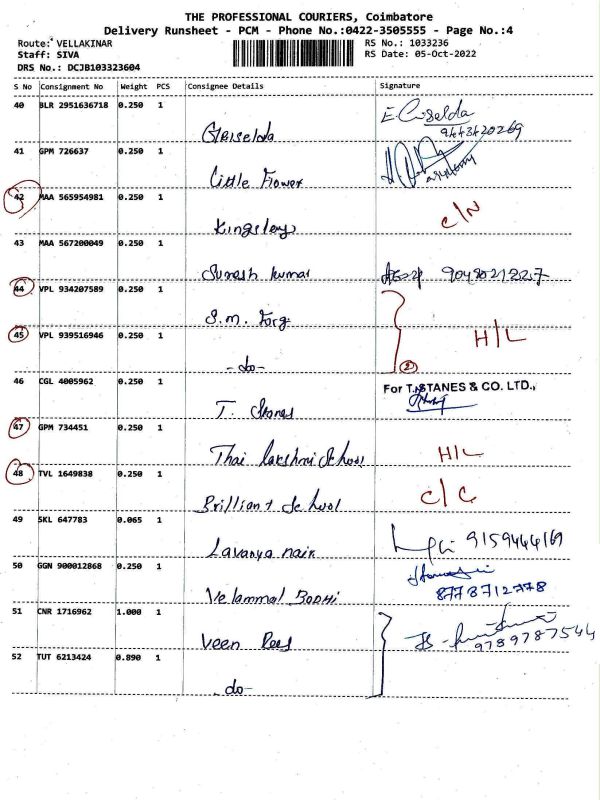 THE PROFESSIONAL COURIERS, Coimbatore
Delivery Runsheet - PCM - Phone No.:0422-3505555 - Page No.:4
Route: VELLAKINAR RS No.: 1033236
Staff: SIVA RS Date: 05-Oct-2022
DRS No.: DCJB103323604
S No Consignment No Weight PCS Consignee Details Signature
40 BLR 2951636718 0.250 1 Griselda E. Griselda
9443420269
41 GPM 726637 0.250 1 Little Flower
42 MAA 565954981 0.250 1 Kingsleys C/N
43 MAA 567200049 0.250 1 Suresh kumar
44 VPL 934207589 0.250 1 S.m. Forg
45 VPL 939516946 0.250 1 -do- H/L
2
46 CGL 4005962 0.250 1 T. Stanes For T. STANES & CO. LTD.,
47 GPM 734451 0.250 1 Thai Lakshmi School H/L
48 TVL 1649838 0.250 1 Brilliant School C/C
49 SKL 647783 0.065 1 Lavanya nair 9159444169
50 GGN 900012868 0.250 1 Velammal BODHI 8778712778
51 CNR 1716962 1.000 1 Veen 9789787544
52 TUT 6213424 0.890 1 -do-